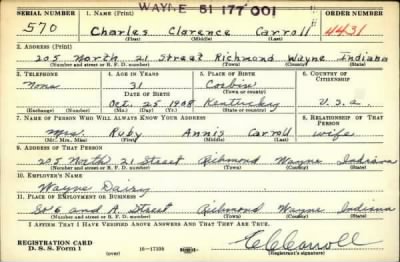 WAYNE 51 177 001
SERIAL NUMBER 1. NAME (Print) ORDER NUMBER
570 Charles Clarence Carroll 4431
(First) (Middle) (Last)
2. ADDRESS (Print)
205 North 21 Street Richmond Wayne Indiana
(Number and street or R. F. D. number) (Town) (County) (State)
3. TELEPHONE 4. AGE IN YEARS 5. PLACE OF BIRTH 6. COUNTRY OF CITIZENSHIP
None 31 Corbin
DATE OF BIRTH (Town or county)
Oct. 25 1908 Kentucky U.S.a.
(Exchange) (Number) (Mo.) (Day) (Yr.) (State or country)
7. NAME OF PERSON WHO WILL ALWAYS KNOW YOUR ADDRESS 8. RELATIONSHIP OF THAT PERSON
Mrs. Ruby Annis Carroll wife
(Mr., Mrs., Miss) (First) (Middle) (Last)
9. ADDRESS OF THAT PERSON
205 North 21 Street Richmond Wayne Indiana
(Number and street or R. F. D. number) (Town) (County) (State)
10. EMPLOYER'S NAME
Wayne Dairy
11. PLACE OF EMPLOYMENT OR BUSINESS
So 6 and A. Street Richmond Wayne Indiana
(Number and street or R. F. D. number) (Town) (County) (State)
I AFFIRM THAT I HAVE VERIFIED ABOVE ANSWERS AND THAT THEY ARE TRUE.
REGISTRATION CARD
D. S. S. Form 1 (over) 16—17105 C C Carroll
(Registrant's signature)